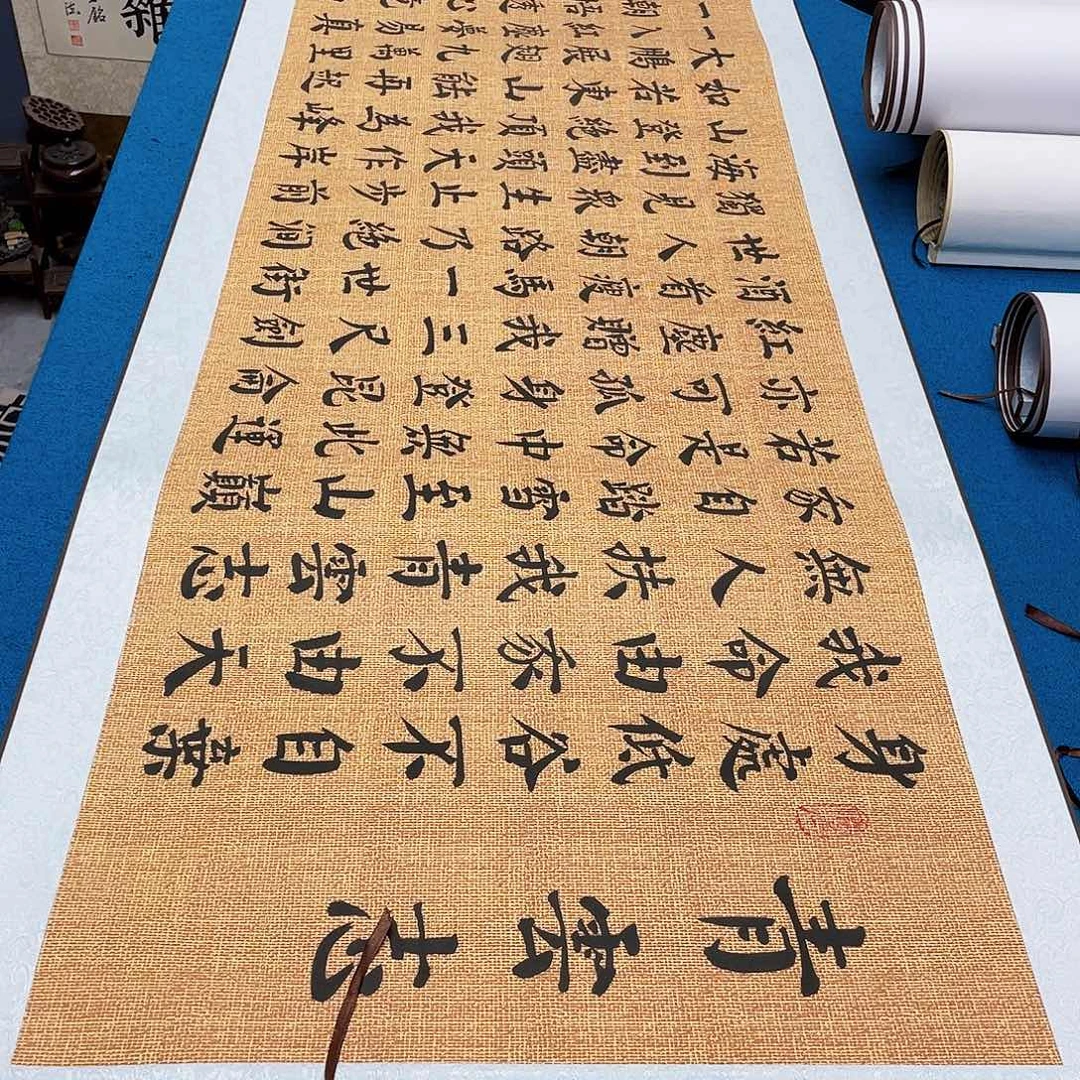 青雲志
身處低谷不自棄
我命由家不由天
無人扶我青雲志
家自踏雪至山巔
若是命中無此運
亦可孤身登昆侖
紅塵贈我三尺劍
酒肴瘦馬一世街
世人朝路乃絕澗
獨見眾生止步前
海到盡頭天作岸
山登絕頂我為峰
如若東山能再起
大鵬展翅九萬里
一入紅塵易真